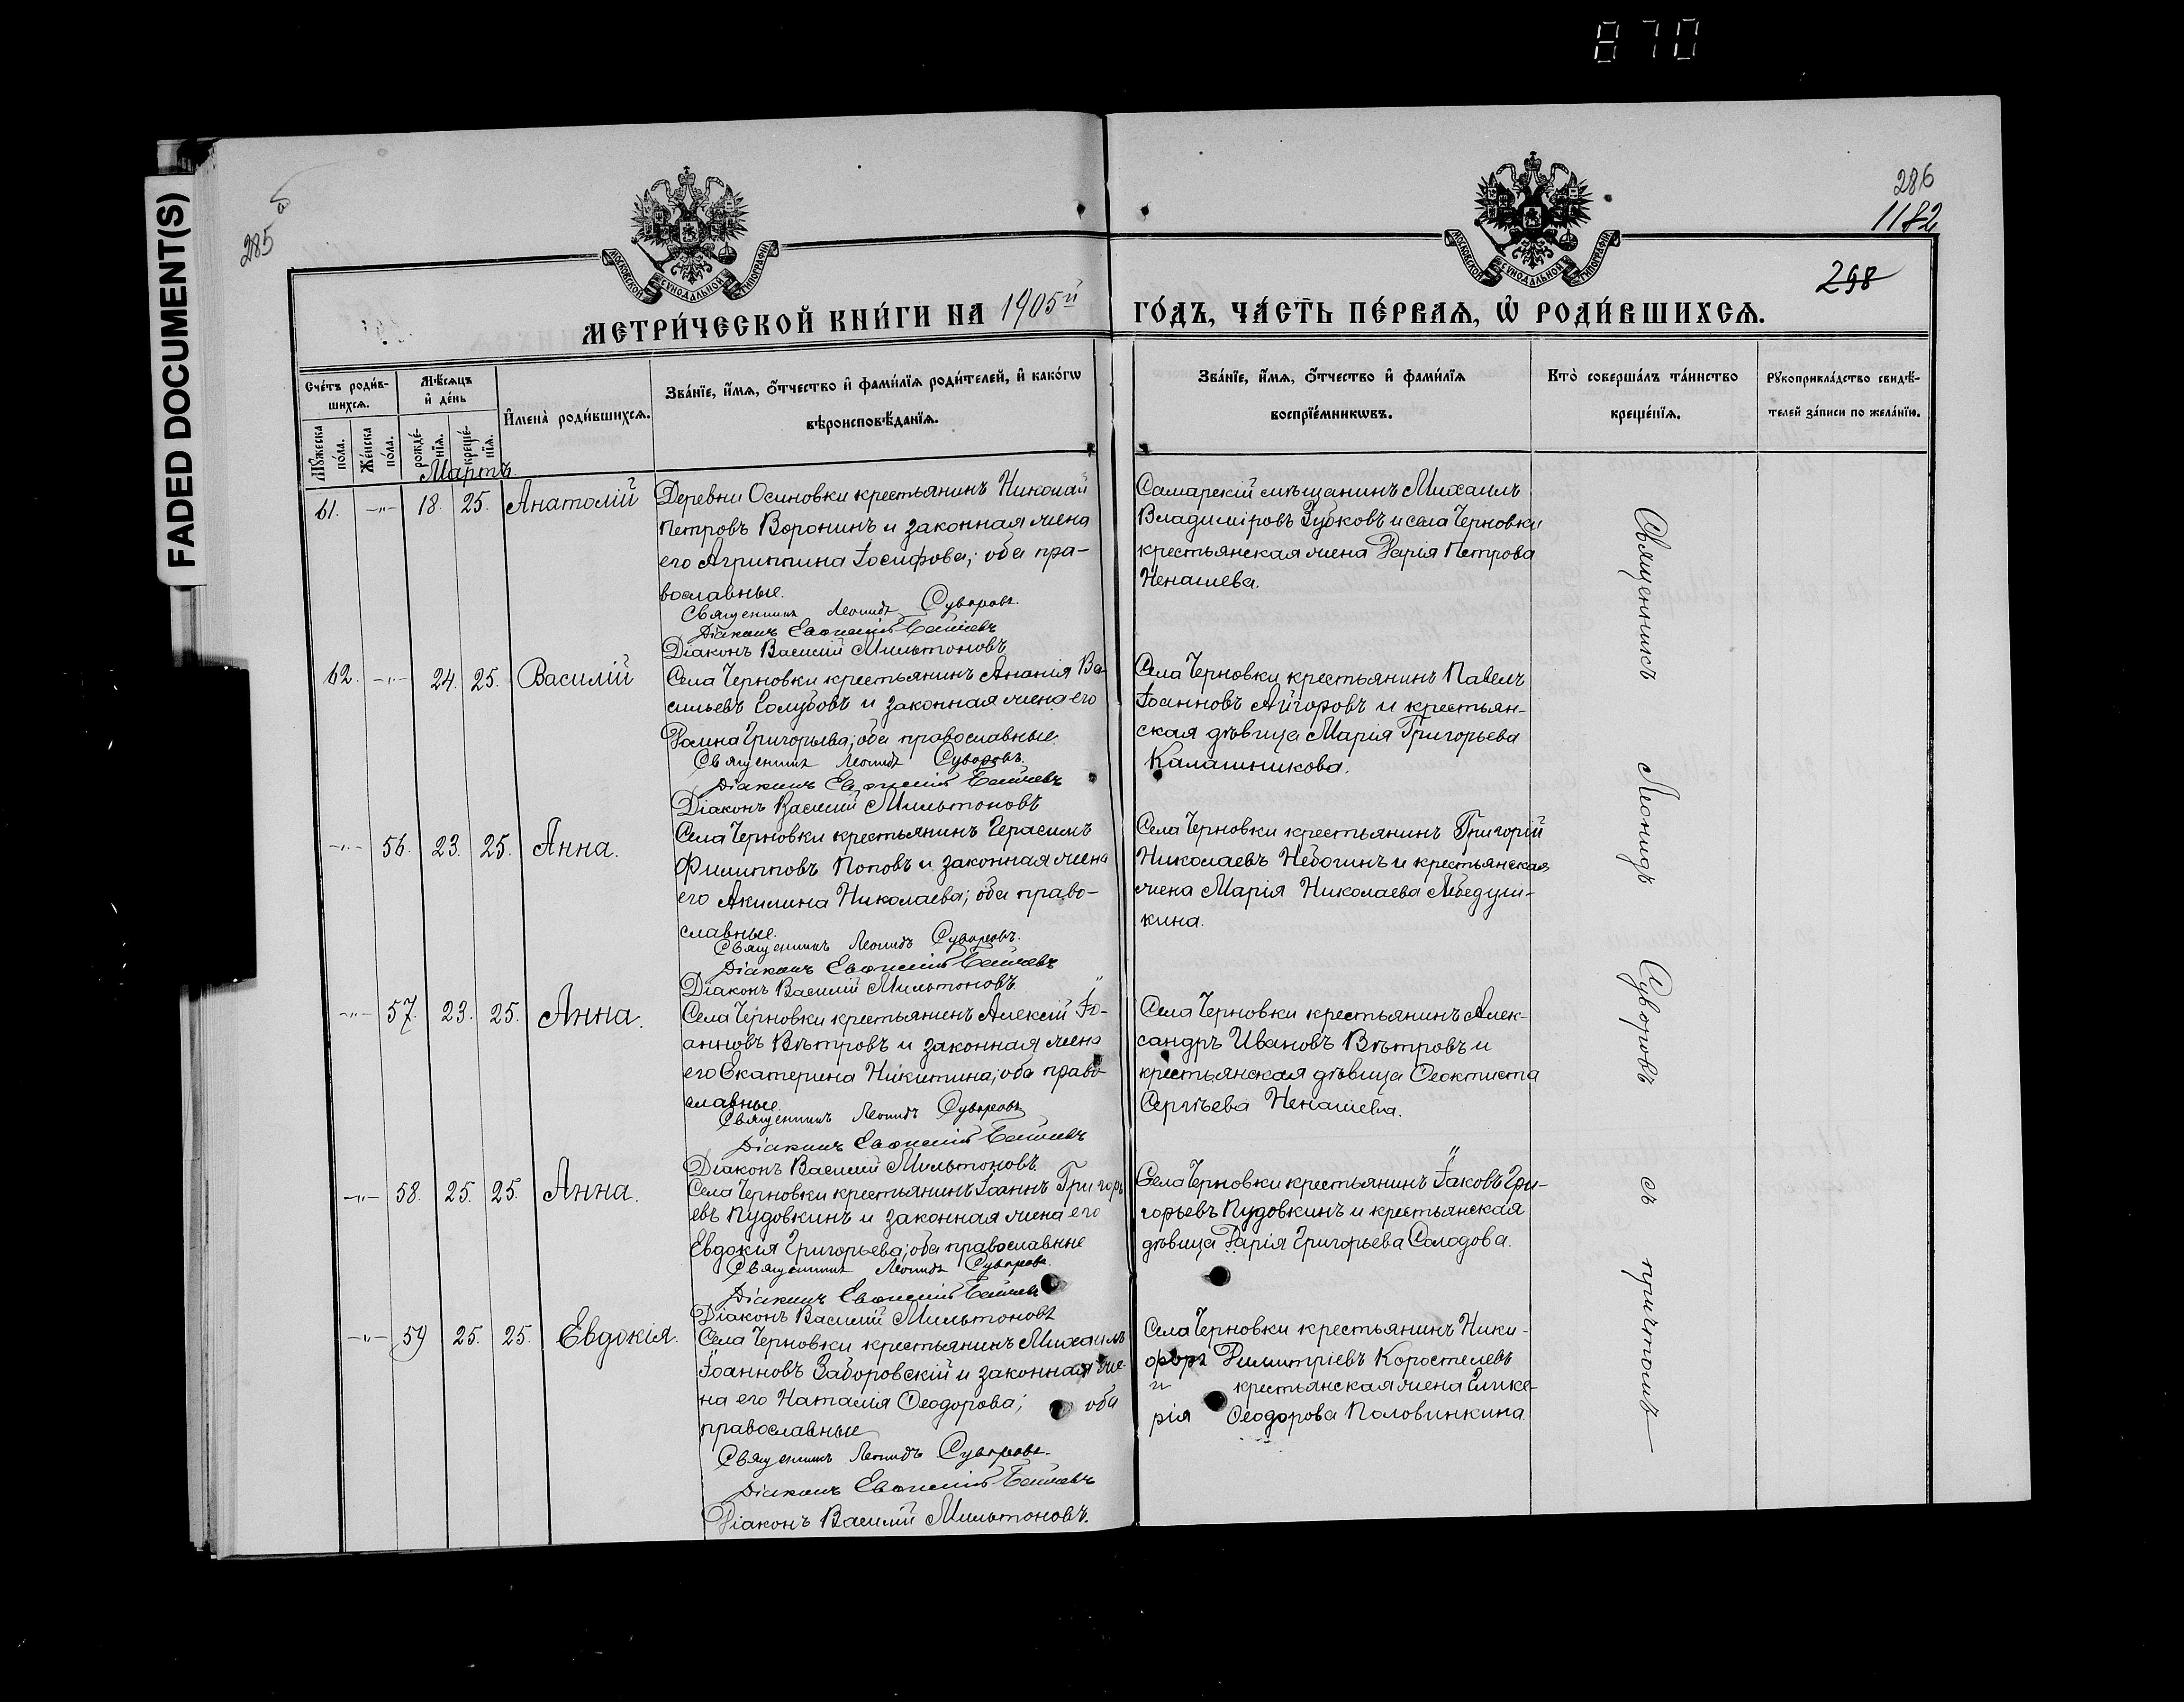 870
FADED DOCUMENT(S)
285 б
286
1182
298
МОСКОВСКОЙ СѴНОДАЛЬНОЙ ТИПОГРАФІИ
МОСКОВСКОЙ СѴНОДАЛЬНОЙ ТИПОГРАФІИ
МЕТРИ́ЧЕСКОЙ КНИ́ГИ НА 1905й ГО́ДЪ, ЧА́СТЬ ПЕ́РВАѦ, Ѡ҆ РОДИ́ВШИХСѦ.
Сче́тъ роди́в-
шихсѧ.
Мꙋ́жеска по́ла.
Же́нска по́ла.
Мѣ́сѧцъ
и҆ де́нь
рожде́-
нїѧ.
креще́-
нїѧ.
И҆мена̀ роди́вшихсѧ.
Зва́нїе, и҆́мѧ, ѻ҆́тчество и҆ фами́лїѧ роди́телей, и҆ како́гѡ
вѣроисповѣ́данїѧ.
Зва́нїе, и҆́мѧ, ѻ҆́тчество и҆ фами́лїѧ
воспрїе́мникѡвъ.
Кто̀ соверша́лъ та́инство
креще́нїѧ.
Рꙋкоприкла́дство свидѣ́-
телей за́писи по жела́нїю.
Мартъ
61. -„- 18. 25. Анатолій
Деревни Осиновки крестьянинъ Николай
Петровъ Воронинъ и законная жена
его Агриппина Іосифова; оба пра-
вославные.
Священникъ Леонидъ Суворовъ.
Діаконъ Евгеній
Діаконъ Василій Мильтоновъ
Самарскій мѣщанинъ Михаилъ
Владиміровъ Зубковъ и села Черновки
крестьянская жена Дарія Петрова
Ненашева.
62. -„- 24. 25. Василій
Села Черновки крестьянинъ Ананія Ва-
сильевъ Голубовъ и законная жена его
Григорьева; оба православные.
Священникъ Леонидъ Суворовъ.
Діаконъ Евгеній
Діаконъ Василій Мильтоновъ
Села Черновки крестьянинъ Павелъ
Іоанновъ и крестьян-
ская дѣвица Марія Григорьева
Калашникова.
-„- 56. 23. 25. Анна.
Села Черновки крестьянинъ Герасимъ
Филипповъ Поповъ и законная жена
его Акилина Николаева; оба право-
славные.
Священникъ Леонидъ Суворовъ.
Діаконъ Евгеній
Діаконъ Василій Мильтоновъ
Села Черновки крестьянинъ Григорій
Николаевъ Небогинъ и крестьянская
жена Марія Николаева Лебедуш-
кина.
-„- 57. 23. 25. Анна.
Села Черновки крестьянинъ Алексій Іо-
анновъ Вѣтровъ и законная жена
его Екатерина Никитина; оба право-
славные.
Священникъ Леонидъ Суворовъ
Діаконъ Евгеній
Діаконъ Василій Мильтоновъ
Села Черновки крестьянинъ Алек-
сандръ Ивановъ Вѣтровъ и
крестьянская дѣвица Ѳеоктиста
Сергѣева Ненашева.
-„- 58. 25. 25. Анна.
Села Черновки крестьянинъ Іоаннъ Григорь
евъ Пудовкинъ и законная жена его
Евдокія Григорьева; оба православные
Священникъ Леонидъ Суворовъ
Діаконъ Евгеній
Діаконъ Василій Мильтоновъ
Села Черновки крестьянинъ Іаковъ Гри-
горьевъ Пудовкинъ и крестьянская
дѣвица Дарія Григорьева Солодова.
-„- 59 25. 25. Евдокія.
Села Черновки крестьянинъ Михаилъ
Іоанновъ Заборовскій и законная же-
на его Наталія Ѳеодорова; оба
православные
Священникъ Леонидъ Суворовъ.
Діаконъ Евгеній
Діаконъ Василій Мильтоновъ.
Села Черновки крестьянинъ Ники-
форъ Димитріевъ Коростелевъ
и крестьянская жена Глике-
рія Ѳеодорова Половинкина.
Священникъ Леонидъ Суворовъ съ причтомъ